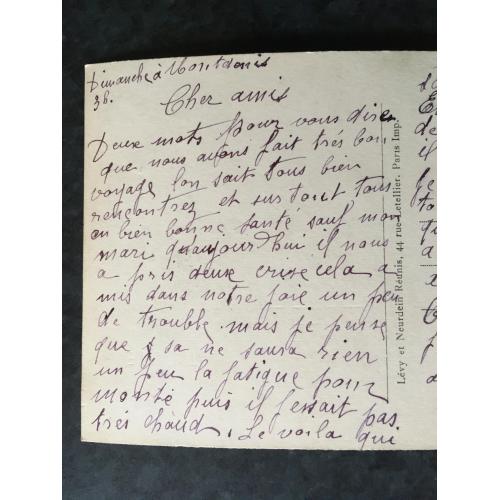 Dimanche à Montdenis
3h.
Cher amis
Deux mots pour vous dire
que nous avons fait trés bon
voyage l'on sait tous bien
rencontrez et surtout tous
en bien bonne santé sauf mon
mari quaujourd'hui il nous
a pris deux crise cela a
mis dans notre joie un peu
de trouble mais je pense
que sa ne saura rien
un peu la fatigue pour
monté puis il fessait pas
trés chaud. Le voila qui
Lévy et Neurdein Réunis, 44 rue Letellier. Paris Imp.